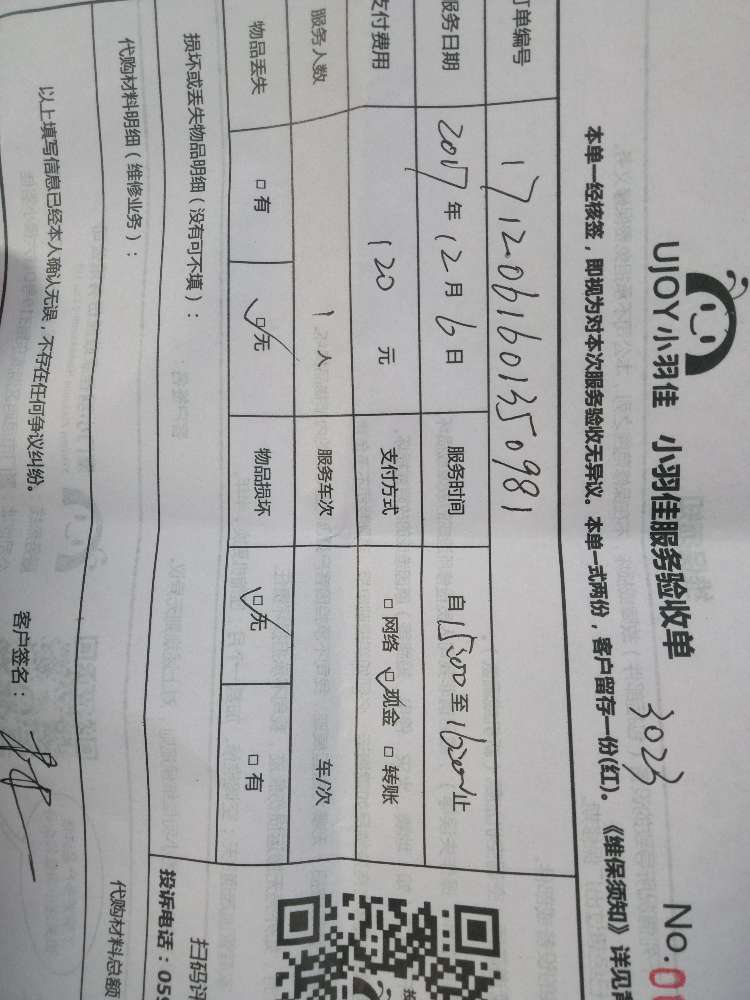 UJOY小羽佳 小羽佳服务验收单
3023
No.0
本单一经核签，即视为对本次服务验收无异议。本单一式两份，客户留存一份(红)。《维保须知》详见背
订单编号 1712061601350981
服务日期 2017年12月6日 服务时间 自15:00至16:00止
支付费用 120元 支付方式 □网络 ☑现金 □转账
服务人数 1人 服务车次 车/次
物品丢失 □有 ☑无 物品损坏 ☑无 □有
损坏或丢失物品明细（没有可不填）：
扫码评
投诉电话：059
代购材料明细（维修业务）：
代购材料总额
以上填写信息已经本人确认无误，不存在任何争议纠纷。
客户签名：